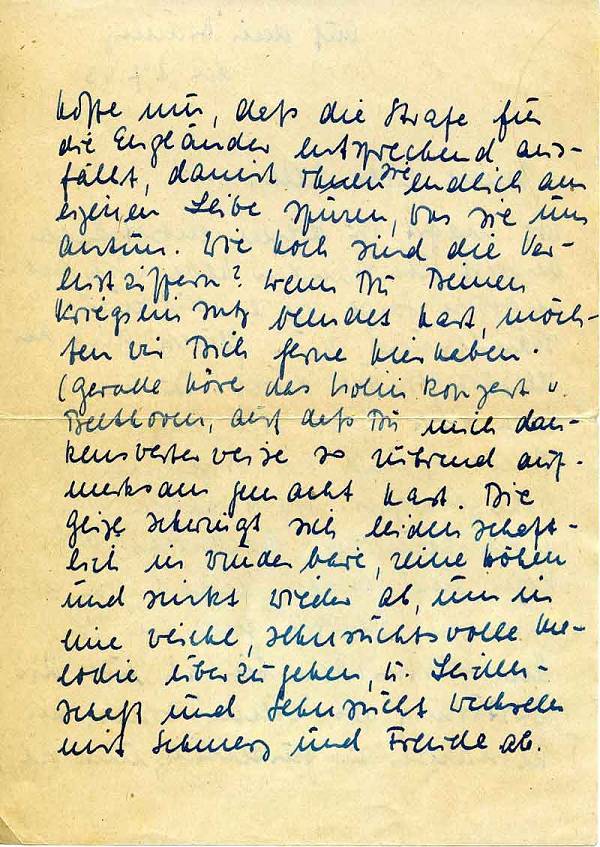 hoffe nur, daß die Strafe für
die Engländer entsprechend aus-
fällt, damit sie endlich am
eigenen Leibe spüren, was sie uns
antun. Wie hoch sind die Ver-
lustziffern? Wenn Du Deinen
Kriegseinsatz beendet hast, möch-
ten wir Dich gerne hierhaben.
(Gerade höre das Violinkonzert v.
Beethoven, auf daß Du mich dan-
kenswerterweise so rührend auf-
merksam gemacht hast. Die
Geige schwingt sich leidenschaft-
lich in wunderbare, reine Höhen
und sinkt wieder ab, um in
eine weiche, sehnsuchtsvolle Me-
lodie überzugehen, u. Leiden-
schaft und Sehnsucht wechseln
mit Schmerz und Freude ab.